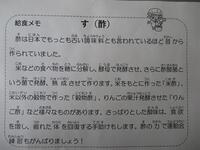 給食メモ
す（酢）
酢は日本でもっとも古い調味料とも言われているほど昔から
作られていました。
米などの食べ物を糖に分解し、酵母で発酵させ、さらに酢酸菌と
いう菌で発酵、熟成させて作ります。米をもとに作った「米酢」、
米以外の穀物で作った「穀物酢」、りんごの果汁発酵させた「りん
ご酢」など様々なものがあります。さっぱりとした酸味は、食
欲を増し、疲れた体を回復する手助けもします。酢の力で運動会
練習もがんばりましょう！